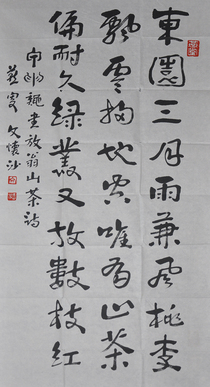 東園三月雨兼風桃李
飄零掃地空唯有山茶
偏耐久綠叢又放數枝紅
書放翁山茶詩
燕叟文懷沙